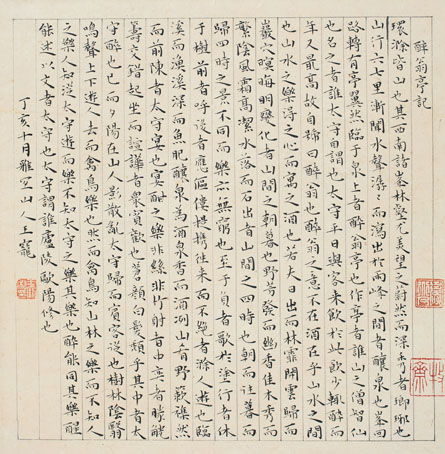 醉翁亭記
環滁皆山也其西南諸峯林壑尤美望之蔚然而深秀者瑯琊也
山行六七里漸聞水聲潺潺而瀉出於兩峰之間者釀泉也峯回
路轉有亭翼然臨于泉上者醉翁亭也作亭者誰山之僧智仙
也名之者誰太守自謂也太守平日與客來飲於此飲少輒醉而
年又最高故自號曰醉翁也醉翁之意不在酒在乎山水之間
也山水之樂得之心而寓之酒也若夫日出而林霏開雲歸而
巖穴暝晦明變化者山間之朝暮也野芳發而幽香佳木秀而
繁陰風霜高潔水落而石出者山間之四時也朝而往暮而
歸四時之景不同而樂亦無窮也至于負者歌於塗行者休
于樹前者呼後者應傴僂提攜往來而不絕者滁人遊也臨
溪而漁溪深而魚肥釀泉為酒泉香而酒洌山肴野蔌雜然
而前陳者太守宴也宴酣之樂非絲非竹射者中弈者勝觥
籌交錯起坐而諠譁者衆賓歡也蒼顏白髮頹乎其中者太
守醉也已而夕陽在山人影散亂太守歸而賓客從也樹林陰翳
鳴聲上下遊人去而禽鳥樂也然而禽鳥知山林之樂而不知人
之樂人知從太守遊而樂不知太守之樂其樂也醉能同其樂醒
能述以文者太守也太守謂誰廬陵歐陽修也
丁亥十月雅宜山人王寵